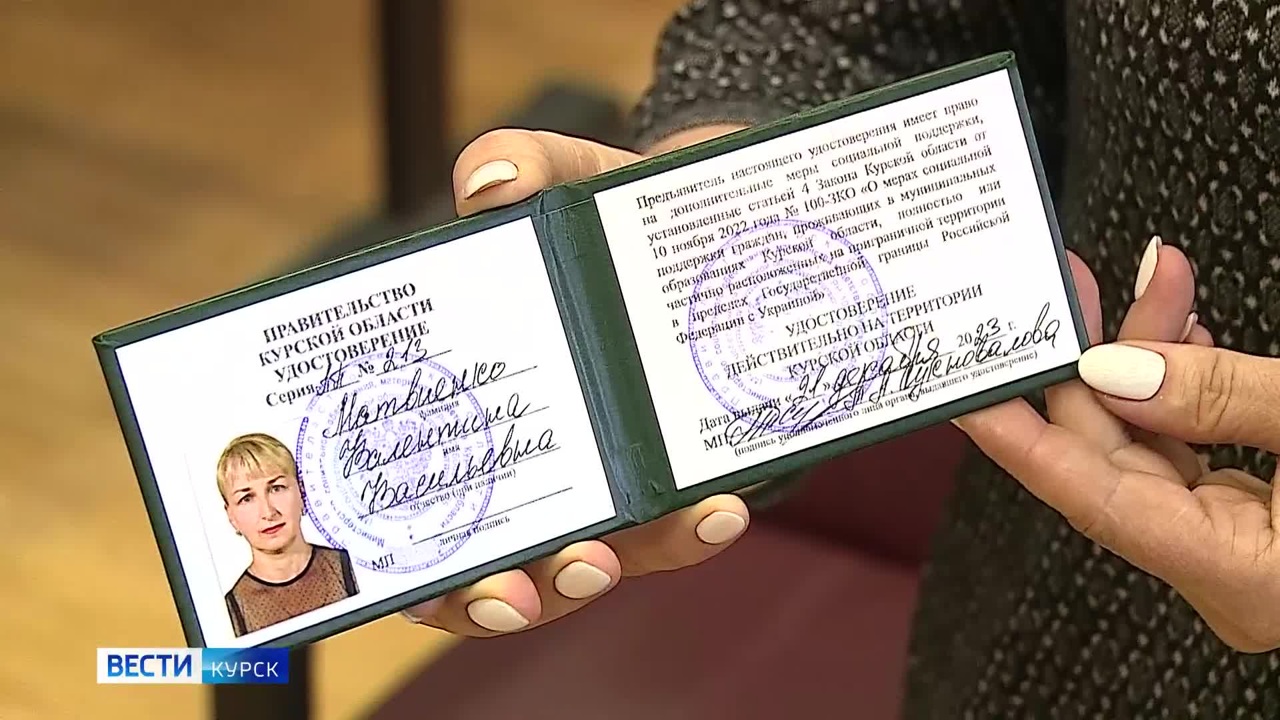 ПРАВИТЕЛЬСТВО
КУРСКОЙ ОБЛАСТИ
УДОСТОВЕРЕНИЕ
Серия № 213
Матвиенко
фамилия
Валентина
имя
Васильевна
отчество (при наличии)
личная подпись
МП
Предъявитель настоящего удостоверения имеет право
на дополнительные меры социальной поддержки,
установленные статьей 4 Закона Курской области от
10 ноября 2022 года № 100-ЗКО «О мерах социальной
поддержки граждан, проживающих в муниципальных
образованиях Курской области, полностью или
частично расположенных на приграничной территории
в пределах Государственной границы Российской
Федерации с Украиной»
УДОСТОВЕРЕНИЕ
ДЕЙСТВИТЕЛЬНО НА ТЕРРИТОРИИ
КУРСКОЙ ОБЛАСТИ
Дата выдачи «21» декабря 2023 г.
МП Пустовалова
(подпись уполномоченного лица органа, выдавшего удостоверение)
ВЕСТИ КУРСК